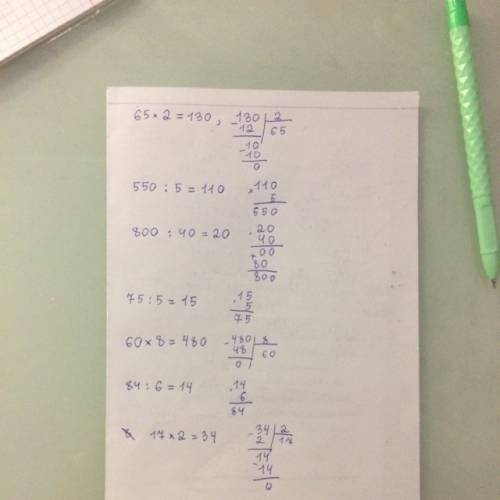 65 × 2 = 130 , -130 | 2
12 | 65
-10
10
0
550 : 5 = 110 ×110
5
550
800 : 40 = 20 ×20
40
+00
80
800
75 : 5 = 15 ×15
5
75
60 × 8 = 480 -480 | 8
48 | 60
0
84 : 6 = 14 ×14
6
84
17 × 2 = 34 -34 | 2
2 | 17
14
-14
0